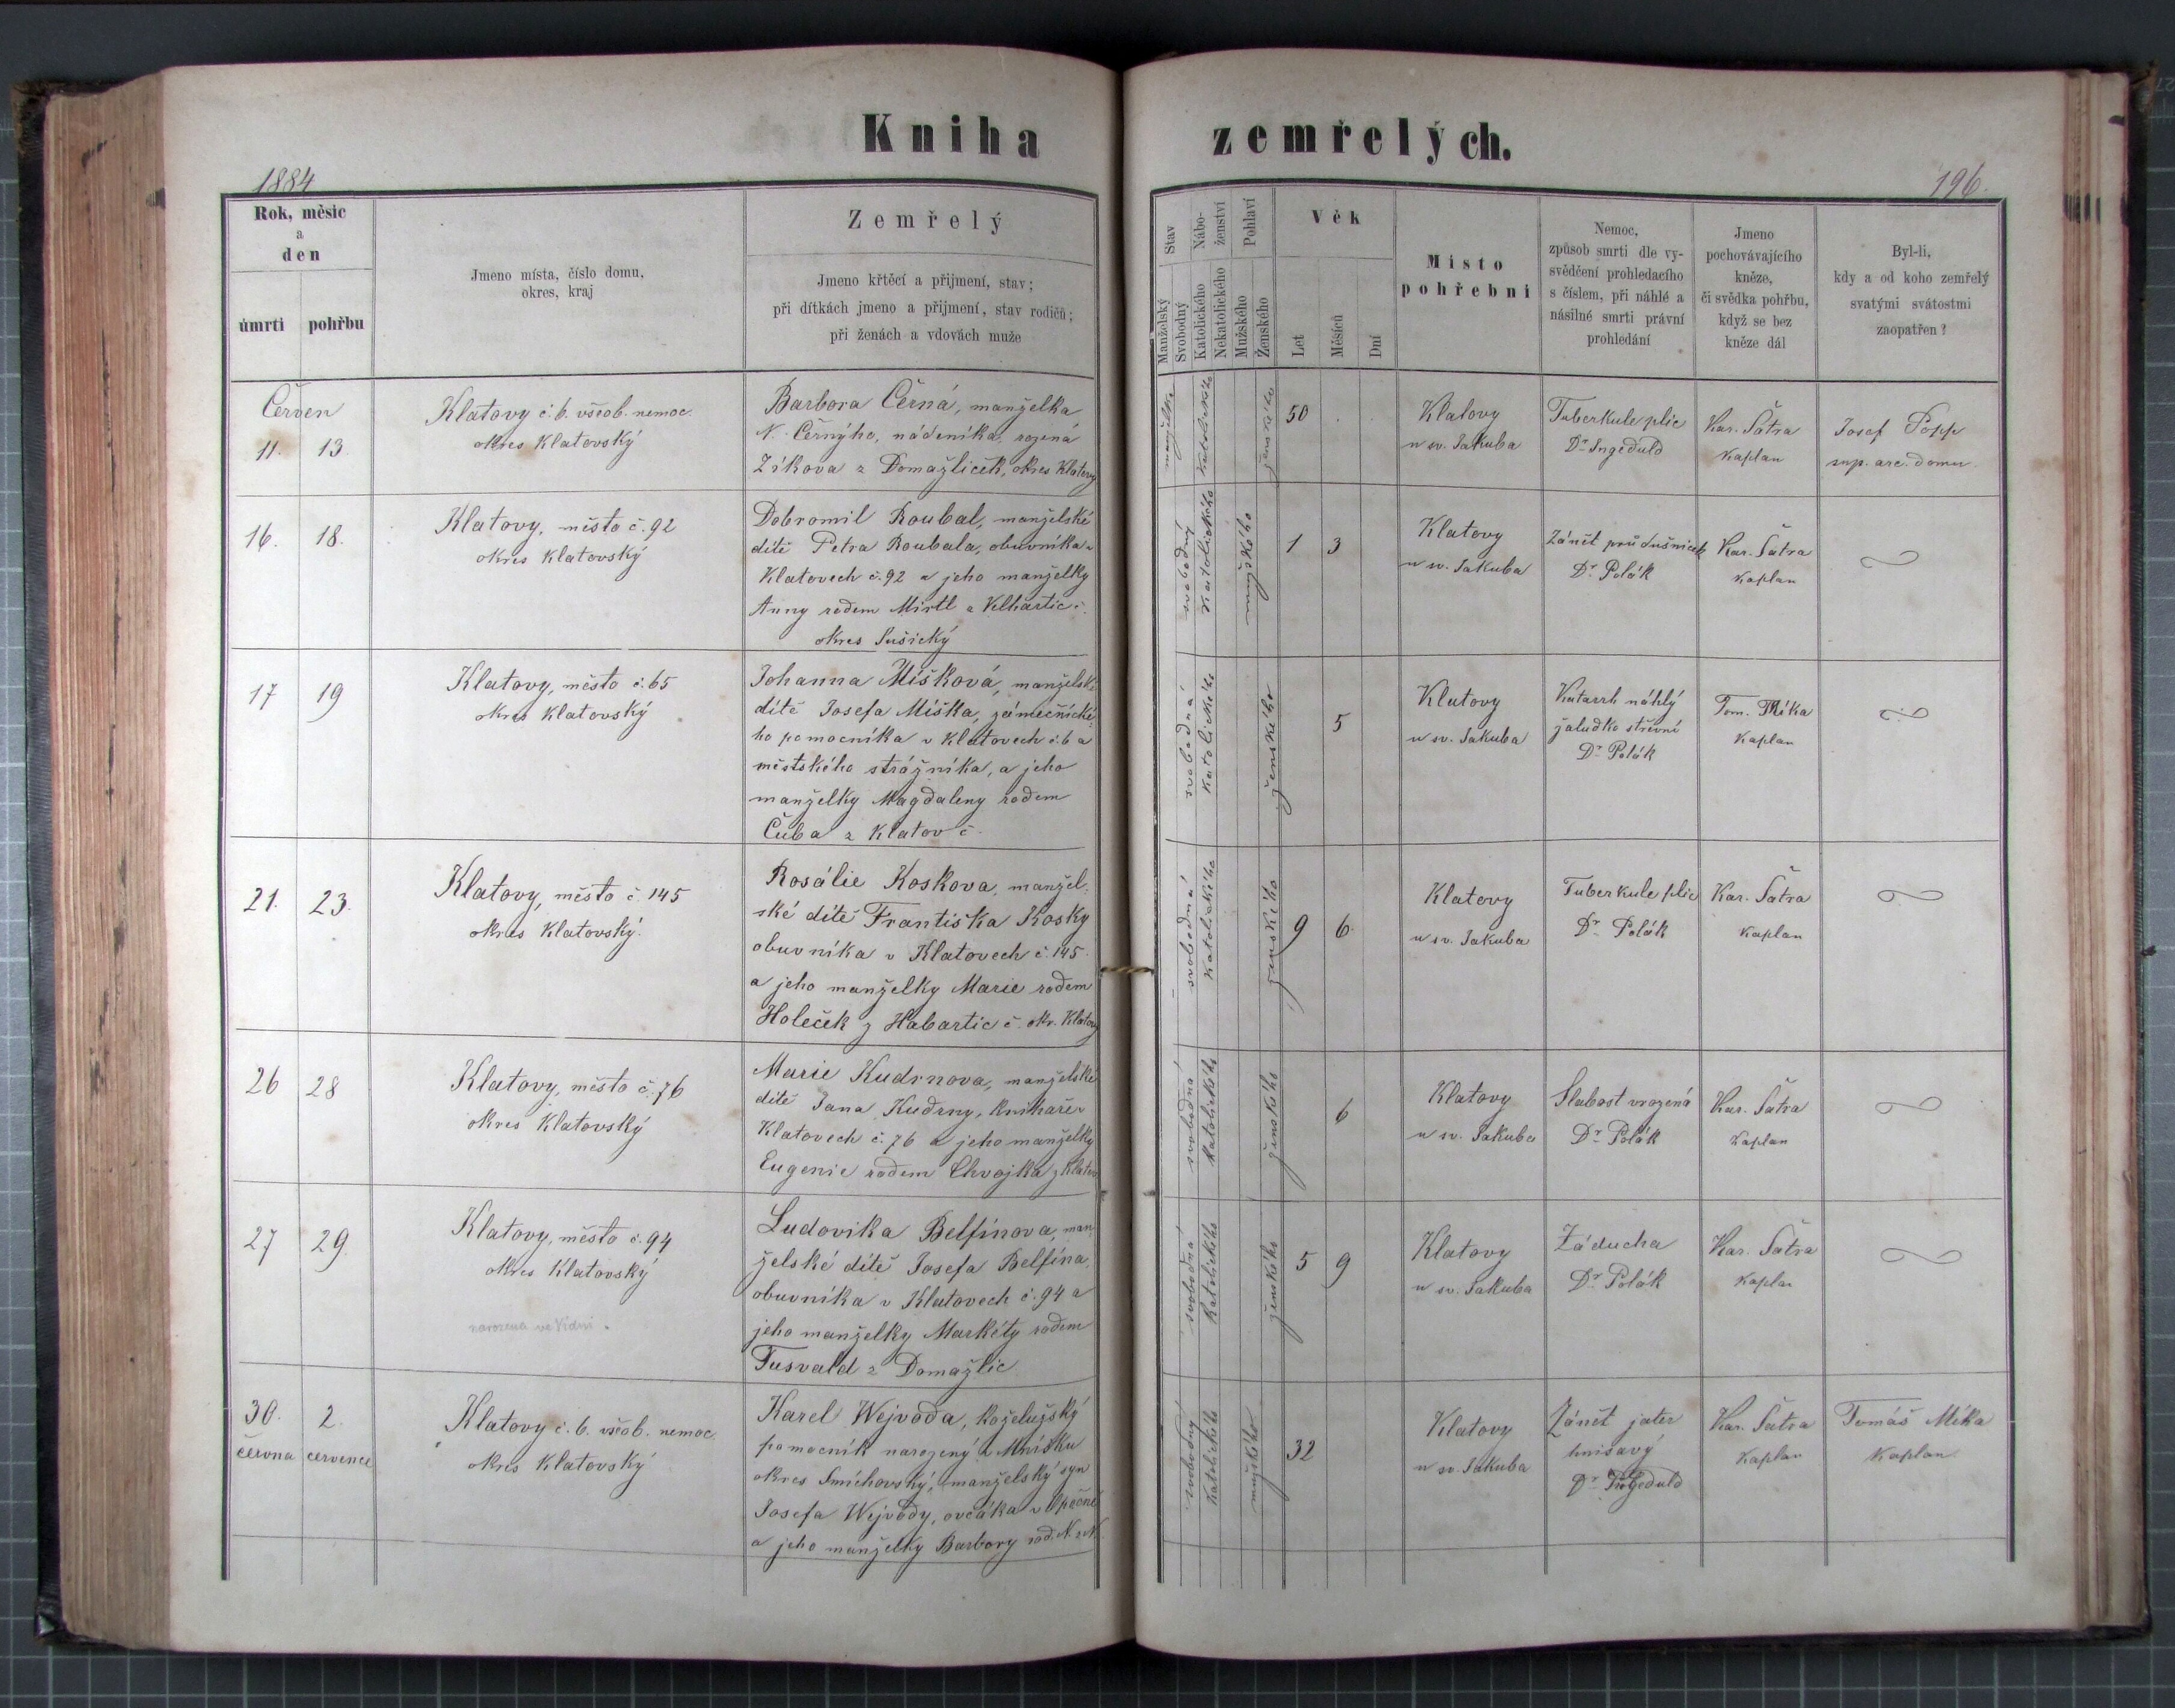 Kniha zemřelých.
1884
196.
Rok, měsíc
a
den
úmrti
pohřbu
Jmeno místa, číslo domu,
okres, kraj
Zemřelý
Jmeno křtěcí a přijmení, stav;
při dítkách jmeno a přijmení, stav rodičů;
při ženách a vdovách muže
Stav
Manželský
Svobodný
Nábo-
ženství
Katolického
Nekatolického
Pohlaví
Mužského
Ženského
Věk
Let
Měsíců
Dní
Místo
pohřební
Nemoc,
způsob smrti dle vy-
svědčení prohledacího
s číslem, při náhlé a
násilné smrti právní
prohledání
Jmeno
pochovávajícího
kněze,
či svědka pohřbu,
když se bez
kněze dál
Byl-li,
kdy a od koho zemřelý
svatými svátostmi
zaopatřen?
Červen
11. 13.
Klatovy č. 6. všeob. nemoc.
okres Klatovský
Barbora Černá, manželka
N. Černýho, nádeníka, rozená
Zíkova z Domažliček, okres Klatovy
manželka
katolického
ženského
50
Klatovy
u sv. Jakuba
Tuberkule plic
Dr. Ingeduld
Kar. Šatra
Kaplan
Josef Popp
sup. arc. domu.
16. 18.
Klatovy, město č. 92
okres Klatovský
Dobromil Roubal, manželské
dítě Petra Roubala, obuvníka v
Klatovech č. 92 a jeho manželky
Anny rodem Mirtl z Velhartic č.
okres Sušický
svobodný
katolického
mužského
1 3
Klatovy
u sv. Jakuba
Zánět průdušnicek
Dr. Polák
Kar. Šatra
Kaplan
17 19
Klatovy, město č. 65
okres Klatovský
Johanna Míšková, manželské
dítě Josefa Míška, zámečnické-
ho pomocníka v Klatovech č. 6 a
městského strážníka, a jeho
manželky Magdaleny rodem
Čuba z Klatov č.
svobodná
katolického
ženského
5
Klatovy
u sv. Jakuba
Katarrh náhlý
žaludko střevní
Dr. Polák
Tom. Míka
Kaplan
21. 23.
Klatovy, město č. 145
okres Klatovský.
Rosálie Koskova, manžel-
ské dítě Františka Kosky
obuvníka v Klatovech č. 145.
a jeho manželky Marie rodem
Holeček z Habartic č. okr. Klatovy
svobodná
katolického
ženského
9 6.
Klatovy
u sv. Jakuba
Tuberkule plic
Dr. Polák
Kar. Šatra
Kaplan
26 28
Klatovy, město č. 76
okres Klatovský
Marie Kudrnova, manželské
dítě Jana Kudrny, knihaře v
Klatovech č. 76 a jeho manželky
Eugenie rodem Chvojka z Klatov
svobodná
katolického
ženského
6
Klatovy
u sv. Jakuba
Slabost vrozená
Dr. Polák
Kar. Šatra
Kaplan
27 29
Klatovy, město č. 94
okres Klatovský
narozena ve Vídni.
Ludovika Belfinova, man-
želské dítě Josefa Belfína,
obuvníka v Klatovech č. 94 a
jeho manželky Markéty rodem
Tusvald z Domažlic
svobodná
katolického
ženského
5 9
Klatovy
u sv. Jakuba
Záducha
Dr. Polák
Kar. Šatra
Kaplan
30. 2.
června července
Klatovy č. 6. všeob. nemoc.
okres Klatovský
Karel Wejvoda, koželužský
pomocník narozený v Mníšku
okres Smíchovský, manželský syn
Josefa Wejvody, ovčáka v
a jeho manželky Barbory rod. N. z N.
svobodný
katolického
mužského
32
Klatovy
u sv. Jakuba
Zánět jater
hnisavý
Dr. Ingeduld
Kar. Šatra
Kaplan
Tomáš Míka
Kaplan